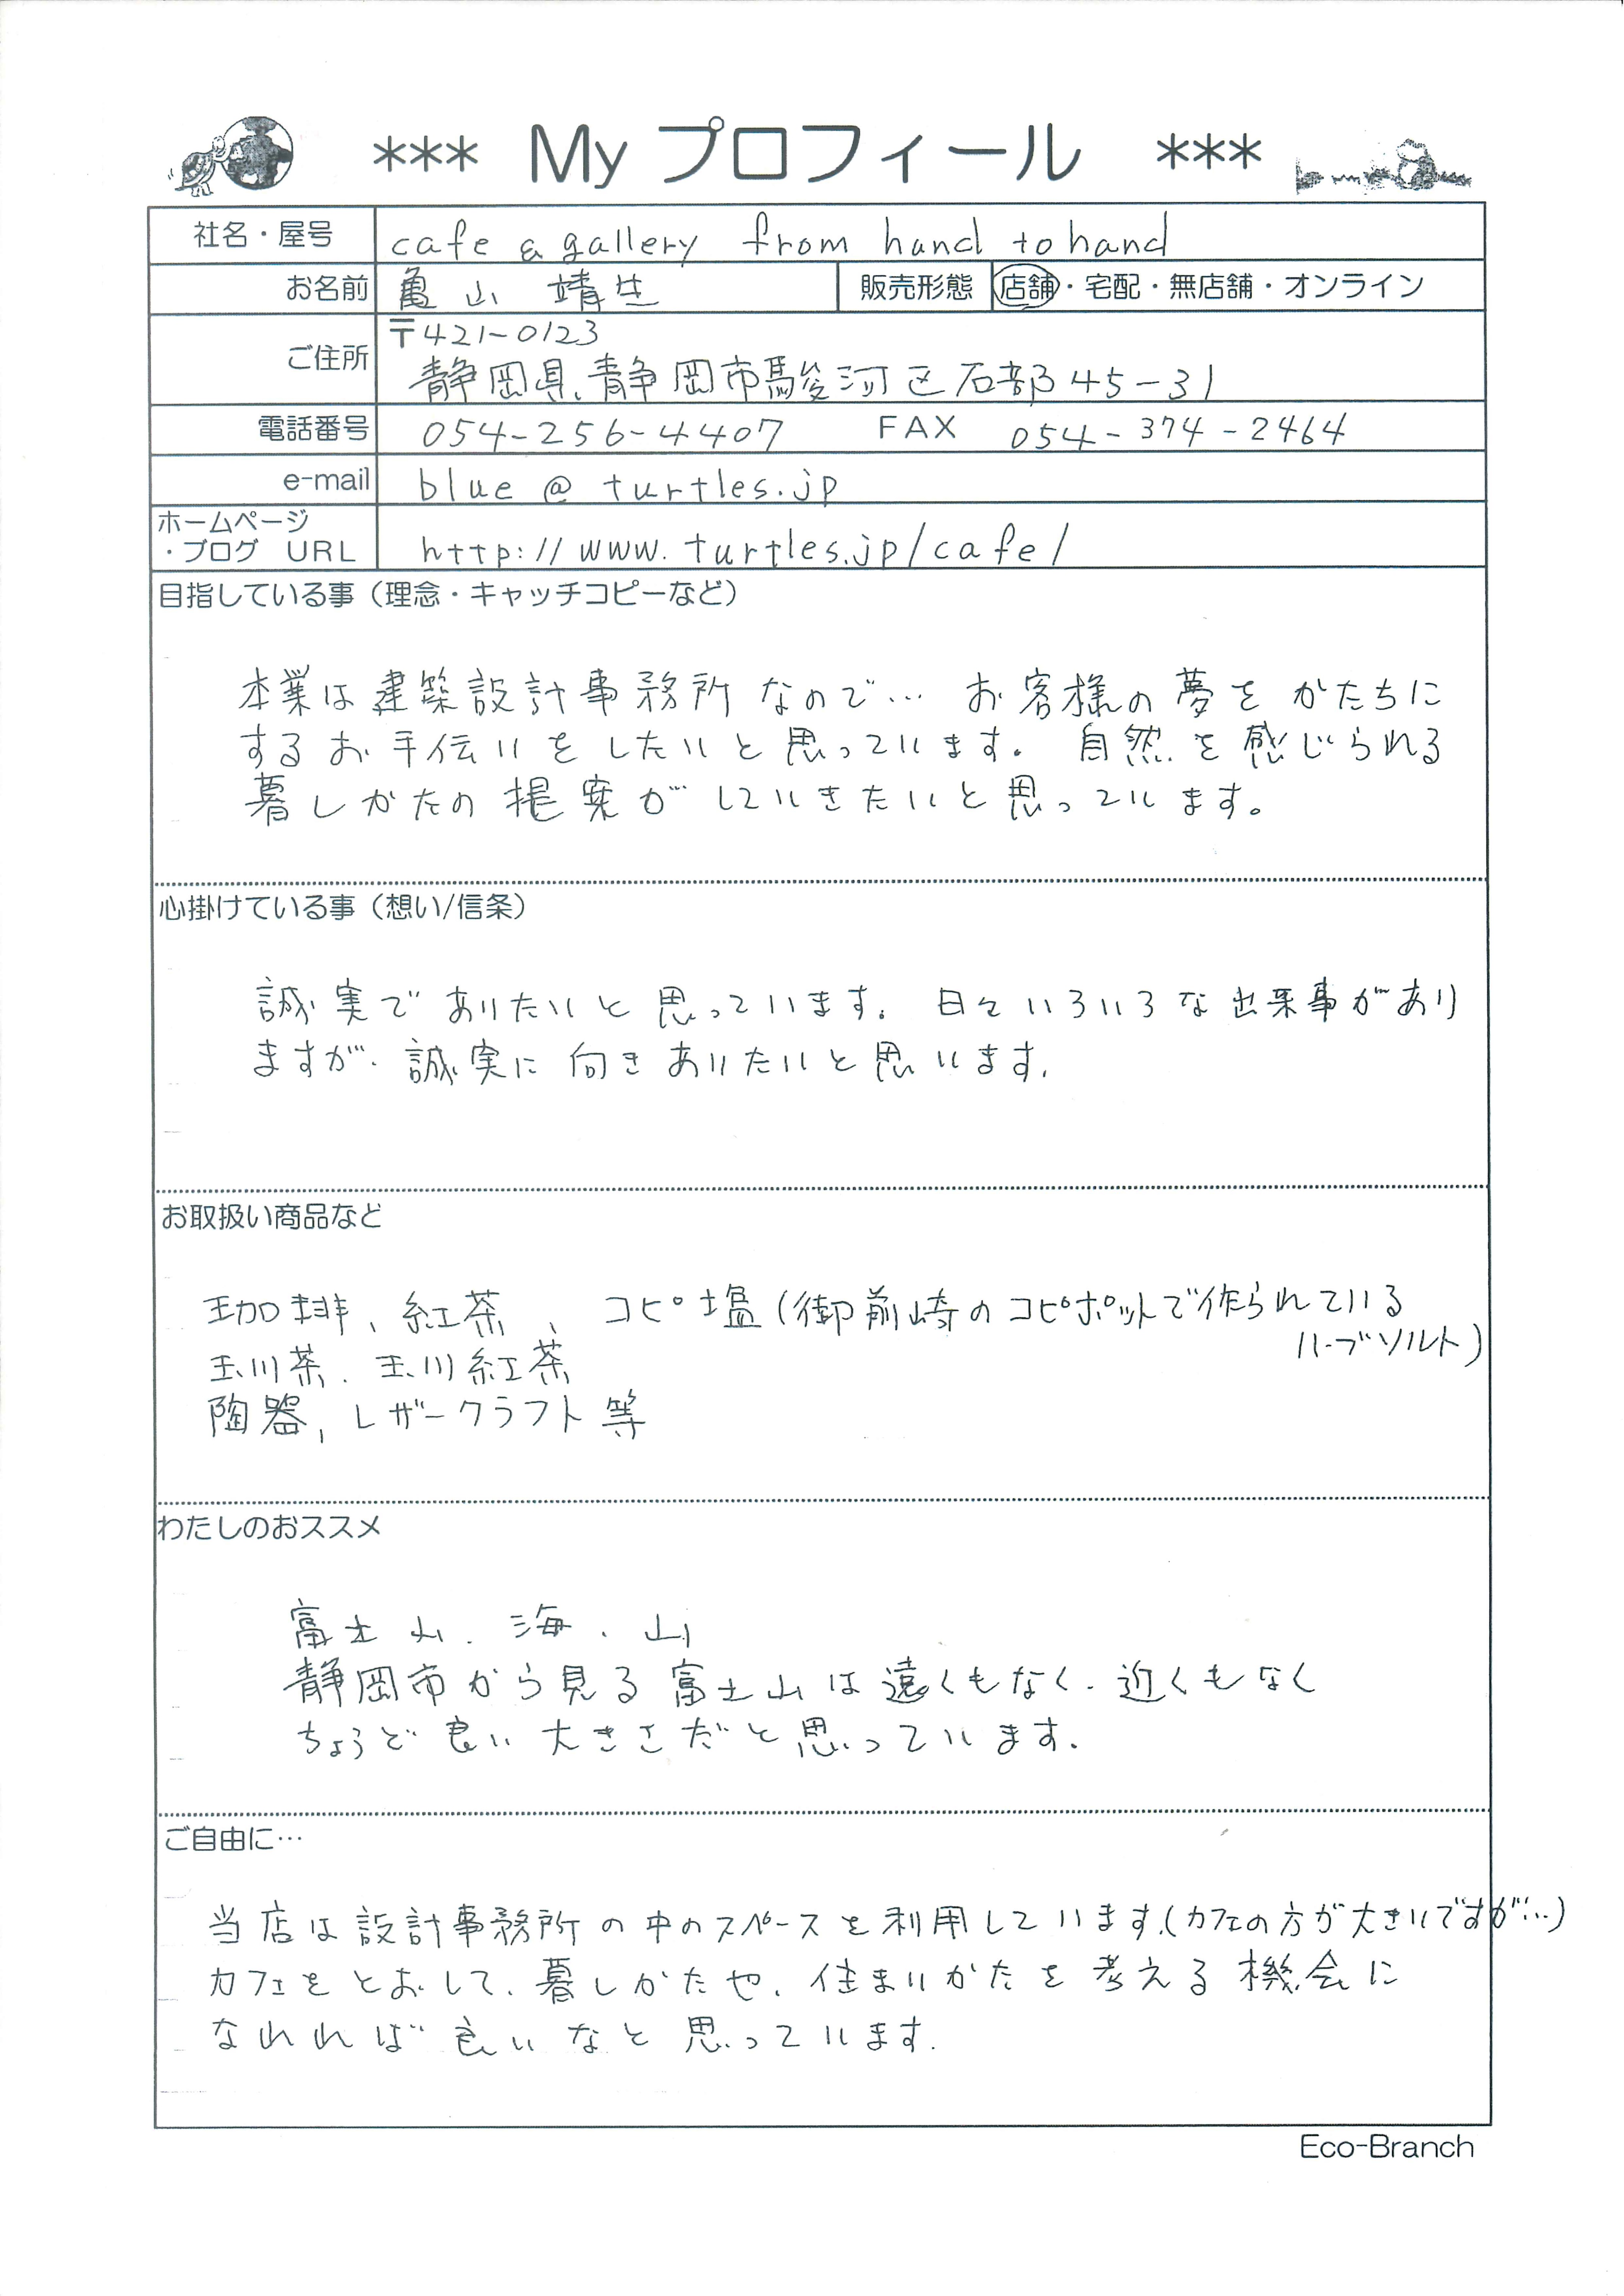 *** My プロフィール ***
社名・屋号 cafe & gallery from hand to hand
お名前 亀山 靖生 販売形態 店舗・宅配・無店舗・オンライン
〒421-0123
ご住所 静岡県静岡市駿河区石部45-31
電話番号 054-256-4407 FAX 054-374-2464
e-mail blue@turtles.jp
ホームページ
・ブログ URL http://www.turtles.jp/cafe/
目指している事（理念・キャッチコピーなど）
本業は建築設計事務所なので… お客様の夢をかたちに
するお手伝いをしたいと思っています。自然を感じられる
暮しかたの提案がしていきたいと思っています。
心掛けている事（想い/信条）
誠実でありたいと思っています。日々いろいろな出来事があり
ますが、誠実に向きあいたいと思います。
お取扱い商品など
珈琲、紅茶、コピ塩（御前崎のコピポットで作られている
ハーブソルト）
玉川茶、玉川紅茶
陶器、レザークラフト等
わたしのおススメ
富士山、海、山
静岡市から見る富士山は遠くもなく、近くもなく
ちょうど良い大きさだと思っています。
ご自由に…
当店は設計事務所の中のスペースを利用しています。（カフェの方が大きいですが…）
カフェをとおして、暮しかたや、住まいかたを考える機会に
なれれば良いなと思っています。
Eco-Branch